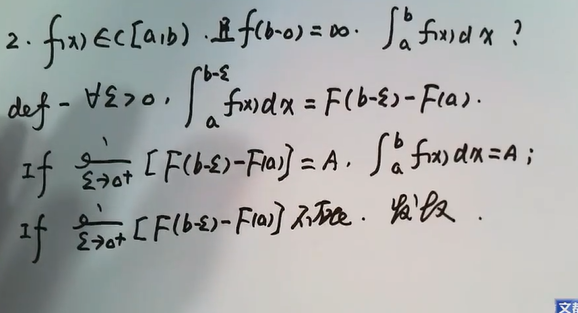 2. f(x)∈C[a,b). 且f(b-0)=∞. ∫_a^b f(x)dx?
def - ∀ε>0. ∫_a^{b-ε} f(x)dx=F(b-ε)-F(a).
If lim_{ε→0+} [F(b-ε)-F(a)]=A. ∫_a^b f(x)dx=A;
If lim_{ε→0+} [F(b-ε)-F(a)] 不存在. 发散.
文都